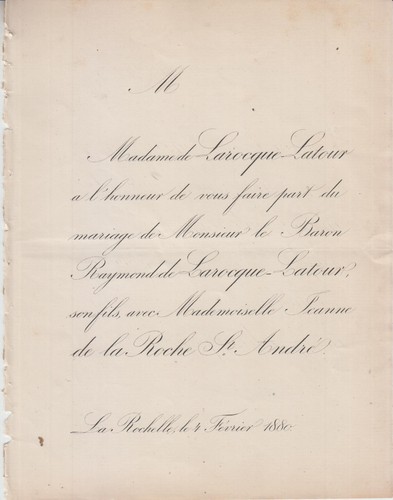 M
Madame de Larocque-Latour
a l'honneur de vous faire part du
mariage de Monsieur le Baron
Raymond de Larocque-Latour,
son fils, avec Mademoiselle Jeanne
de la Roche St. André.
La Rochelle, le 4 Février 1880.